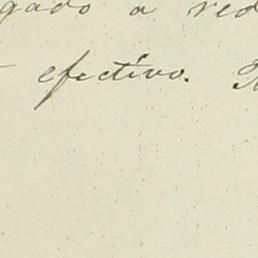 gado a red
efectivo.